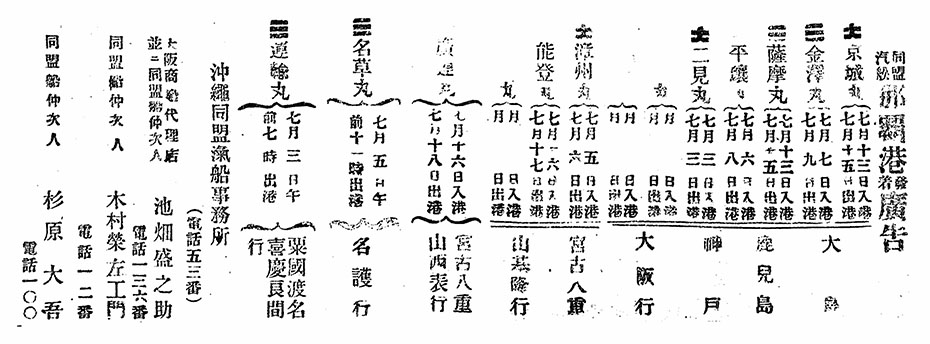 同盟汽船 那覇港發着廣告
京城丸 七月十三日入港 七月十五日出港
金澤丸 七月七日入港 七月九日出港
薩摩丸 七月十三日入港 七月十五日出港
平壤丸 七月六日入港 七月八日出港
二見丸 七月三日入港 七月三日出港
丸 月 日入港 月 日出港
大 鹿兒島 神戸 大阪行
漳州丸 七月五日入港 七月六日出港
能登丸 七月十六日入港 七月十七日出港
丸 月 日入港 月 日出港
宮古八重山基隆行
丸 七月十六日入港 七月十八日出港 宮古八重山西表行
名草丸 七月五日午前十一時出港 名護行
運輸丸 七月三日午前七時出港 粟國渡名喜慶良間行
沖繩同盟漁船事務所
(電話五三番)
大阪商船代理店並ニ同盟船仲次人 池畑盛之助
電話一三六番
同盟船仲次人 木村榮左工門
電話一二番
同盟船仲次人 杉原大吾
電話一〇〇